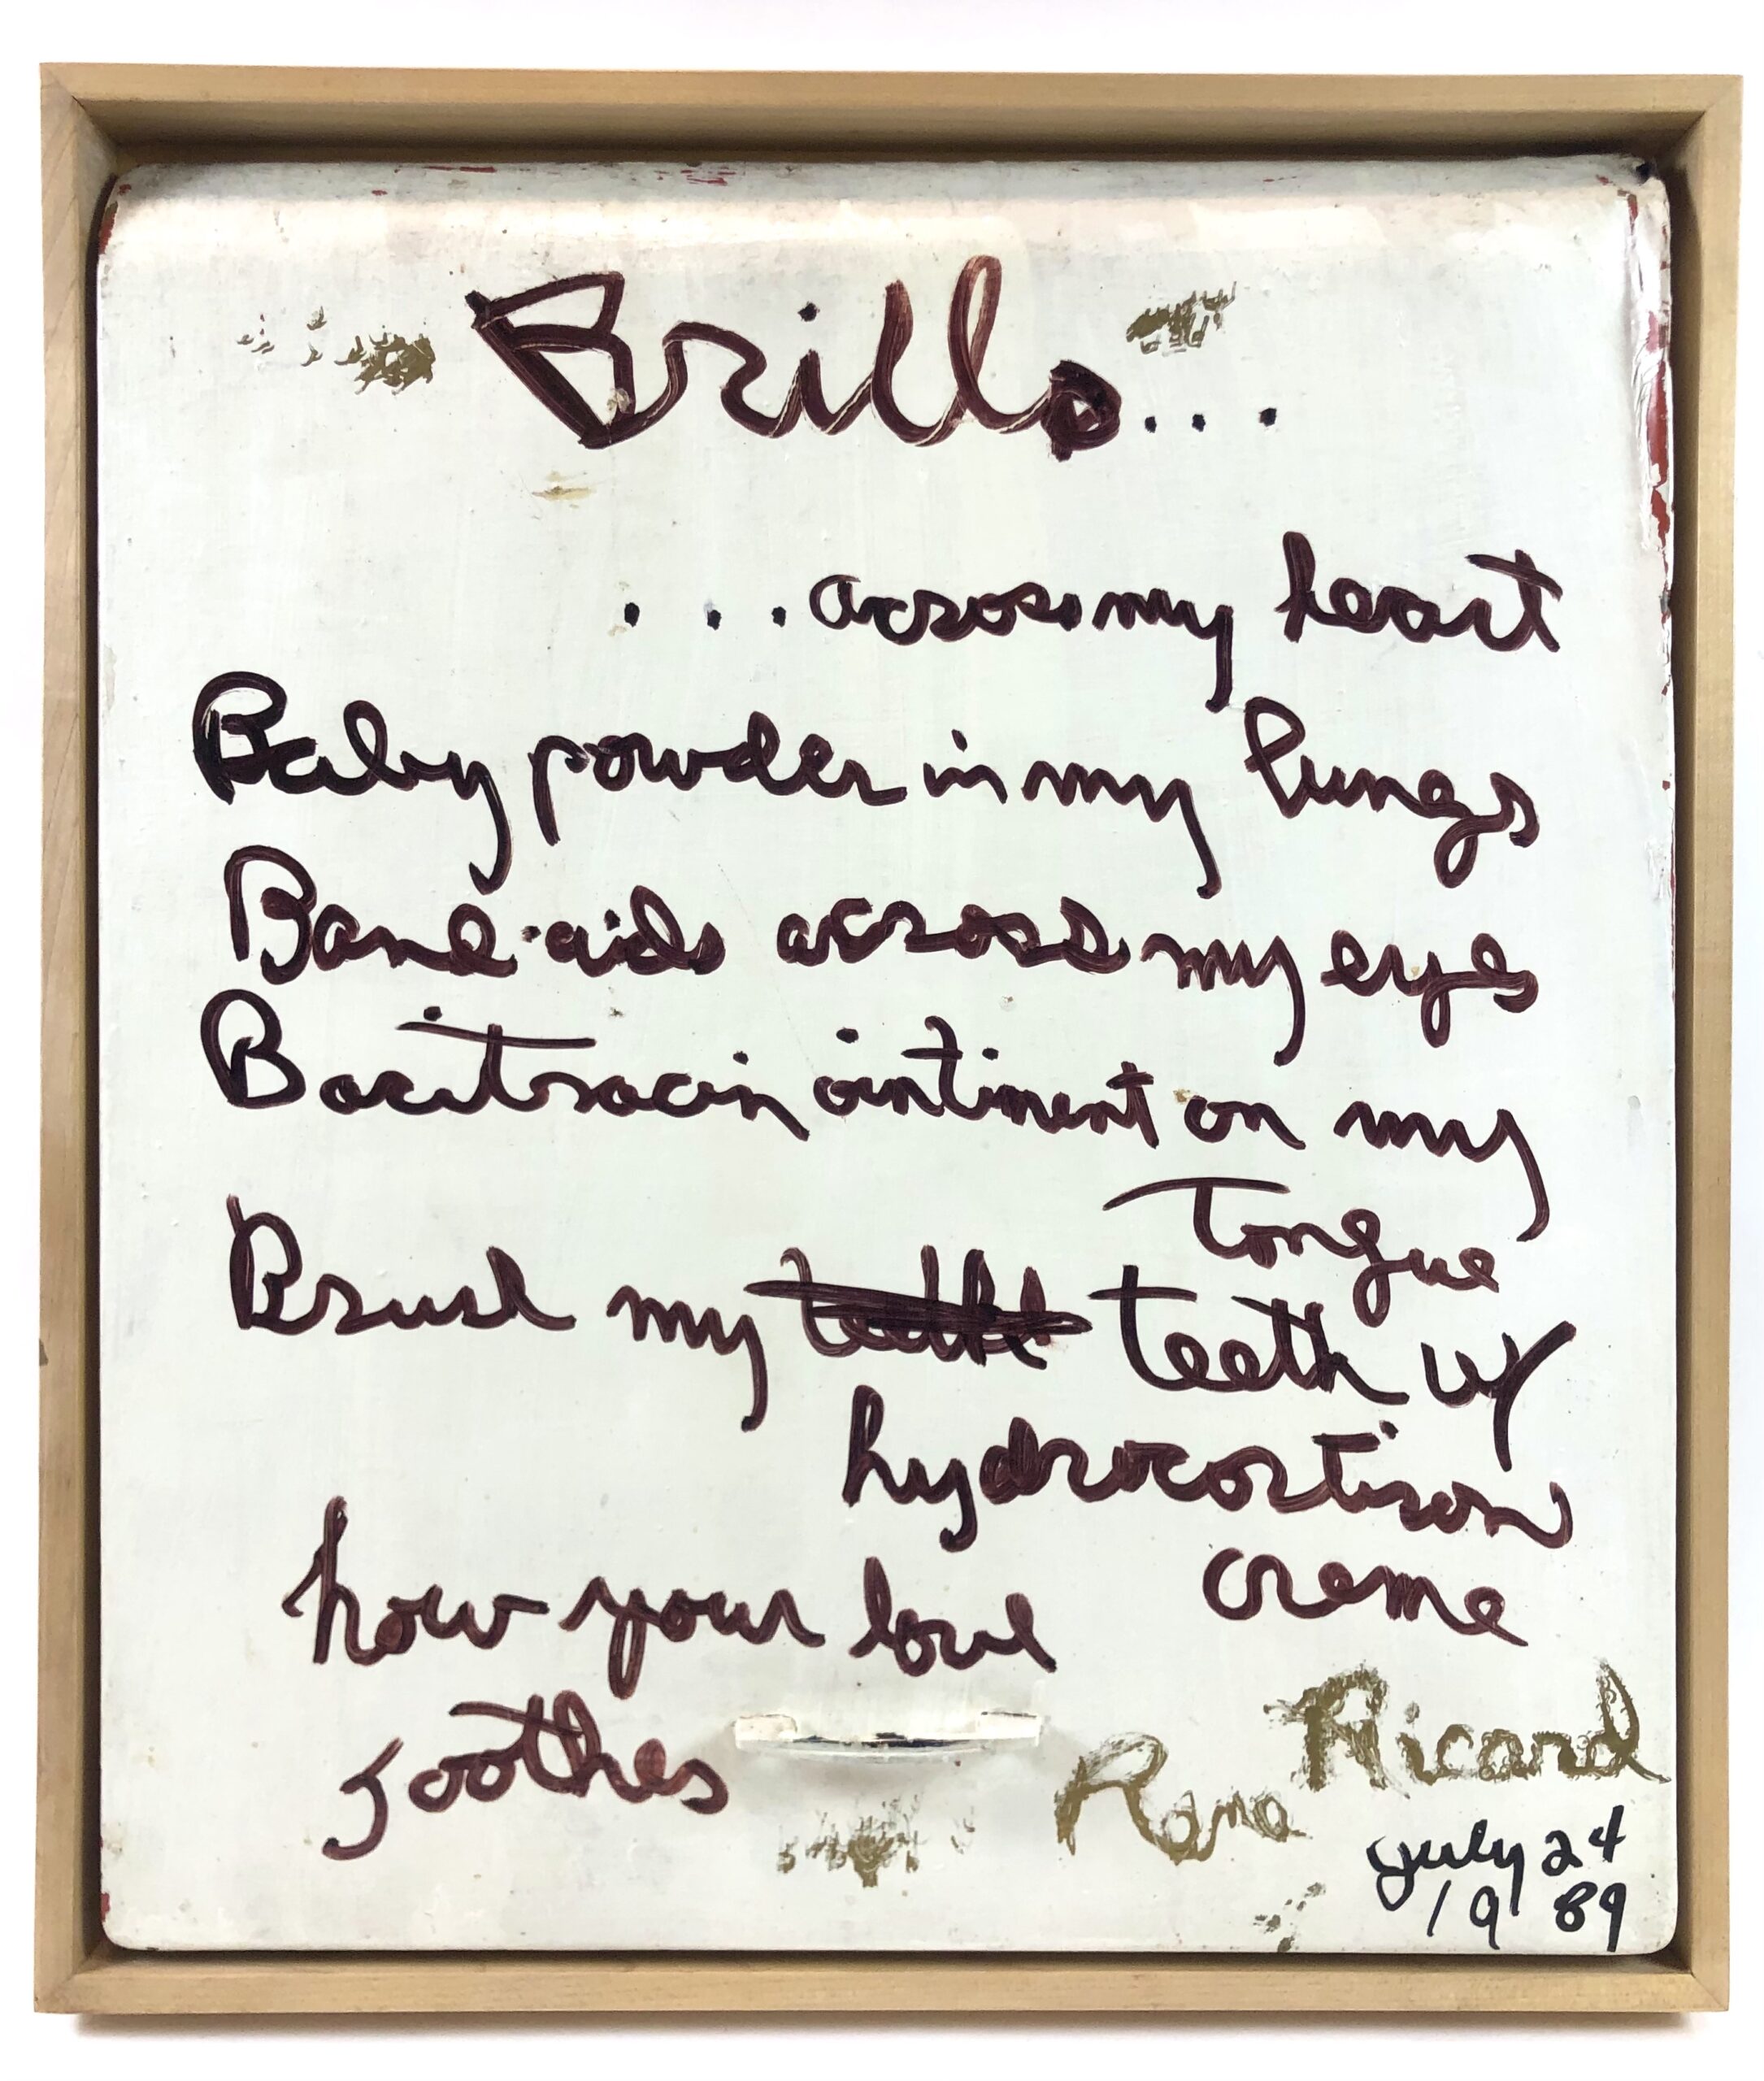 Brillo...
...across my heart
Baby powder in my lungs
Band-aids across my eyes
Bacitracin ointiment on my
tongue
Brush my teeth w/
hydrocortison
creme
how your love
soothes
Rene Ricard
july 24
1989